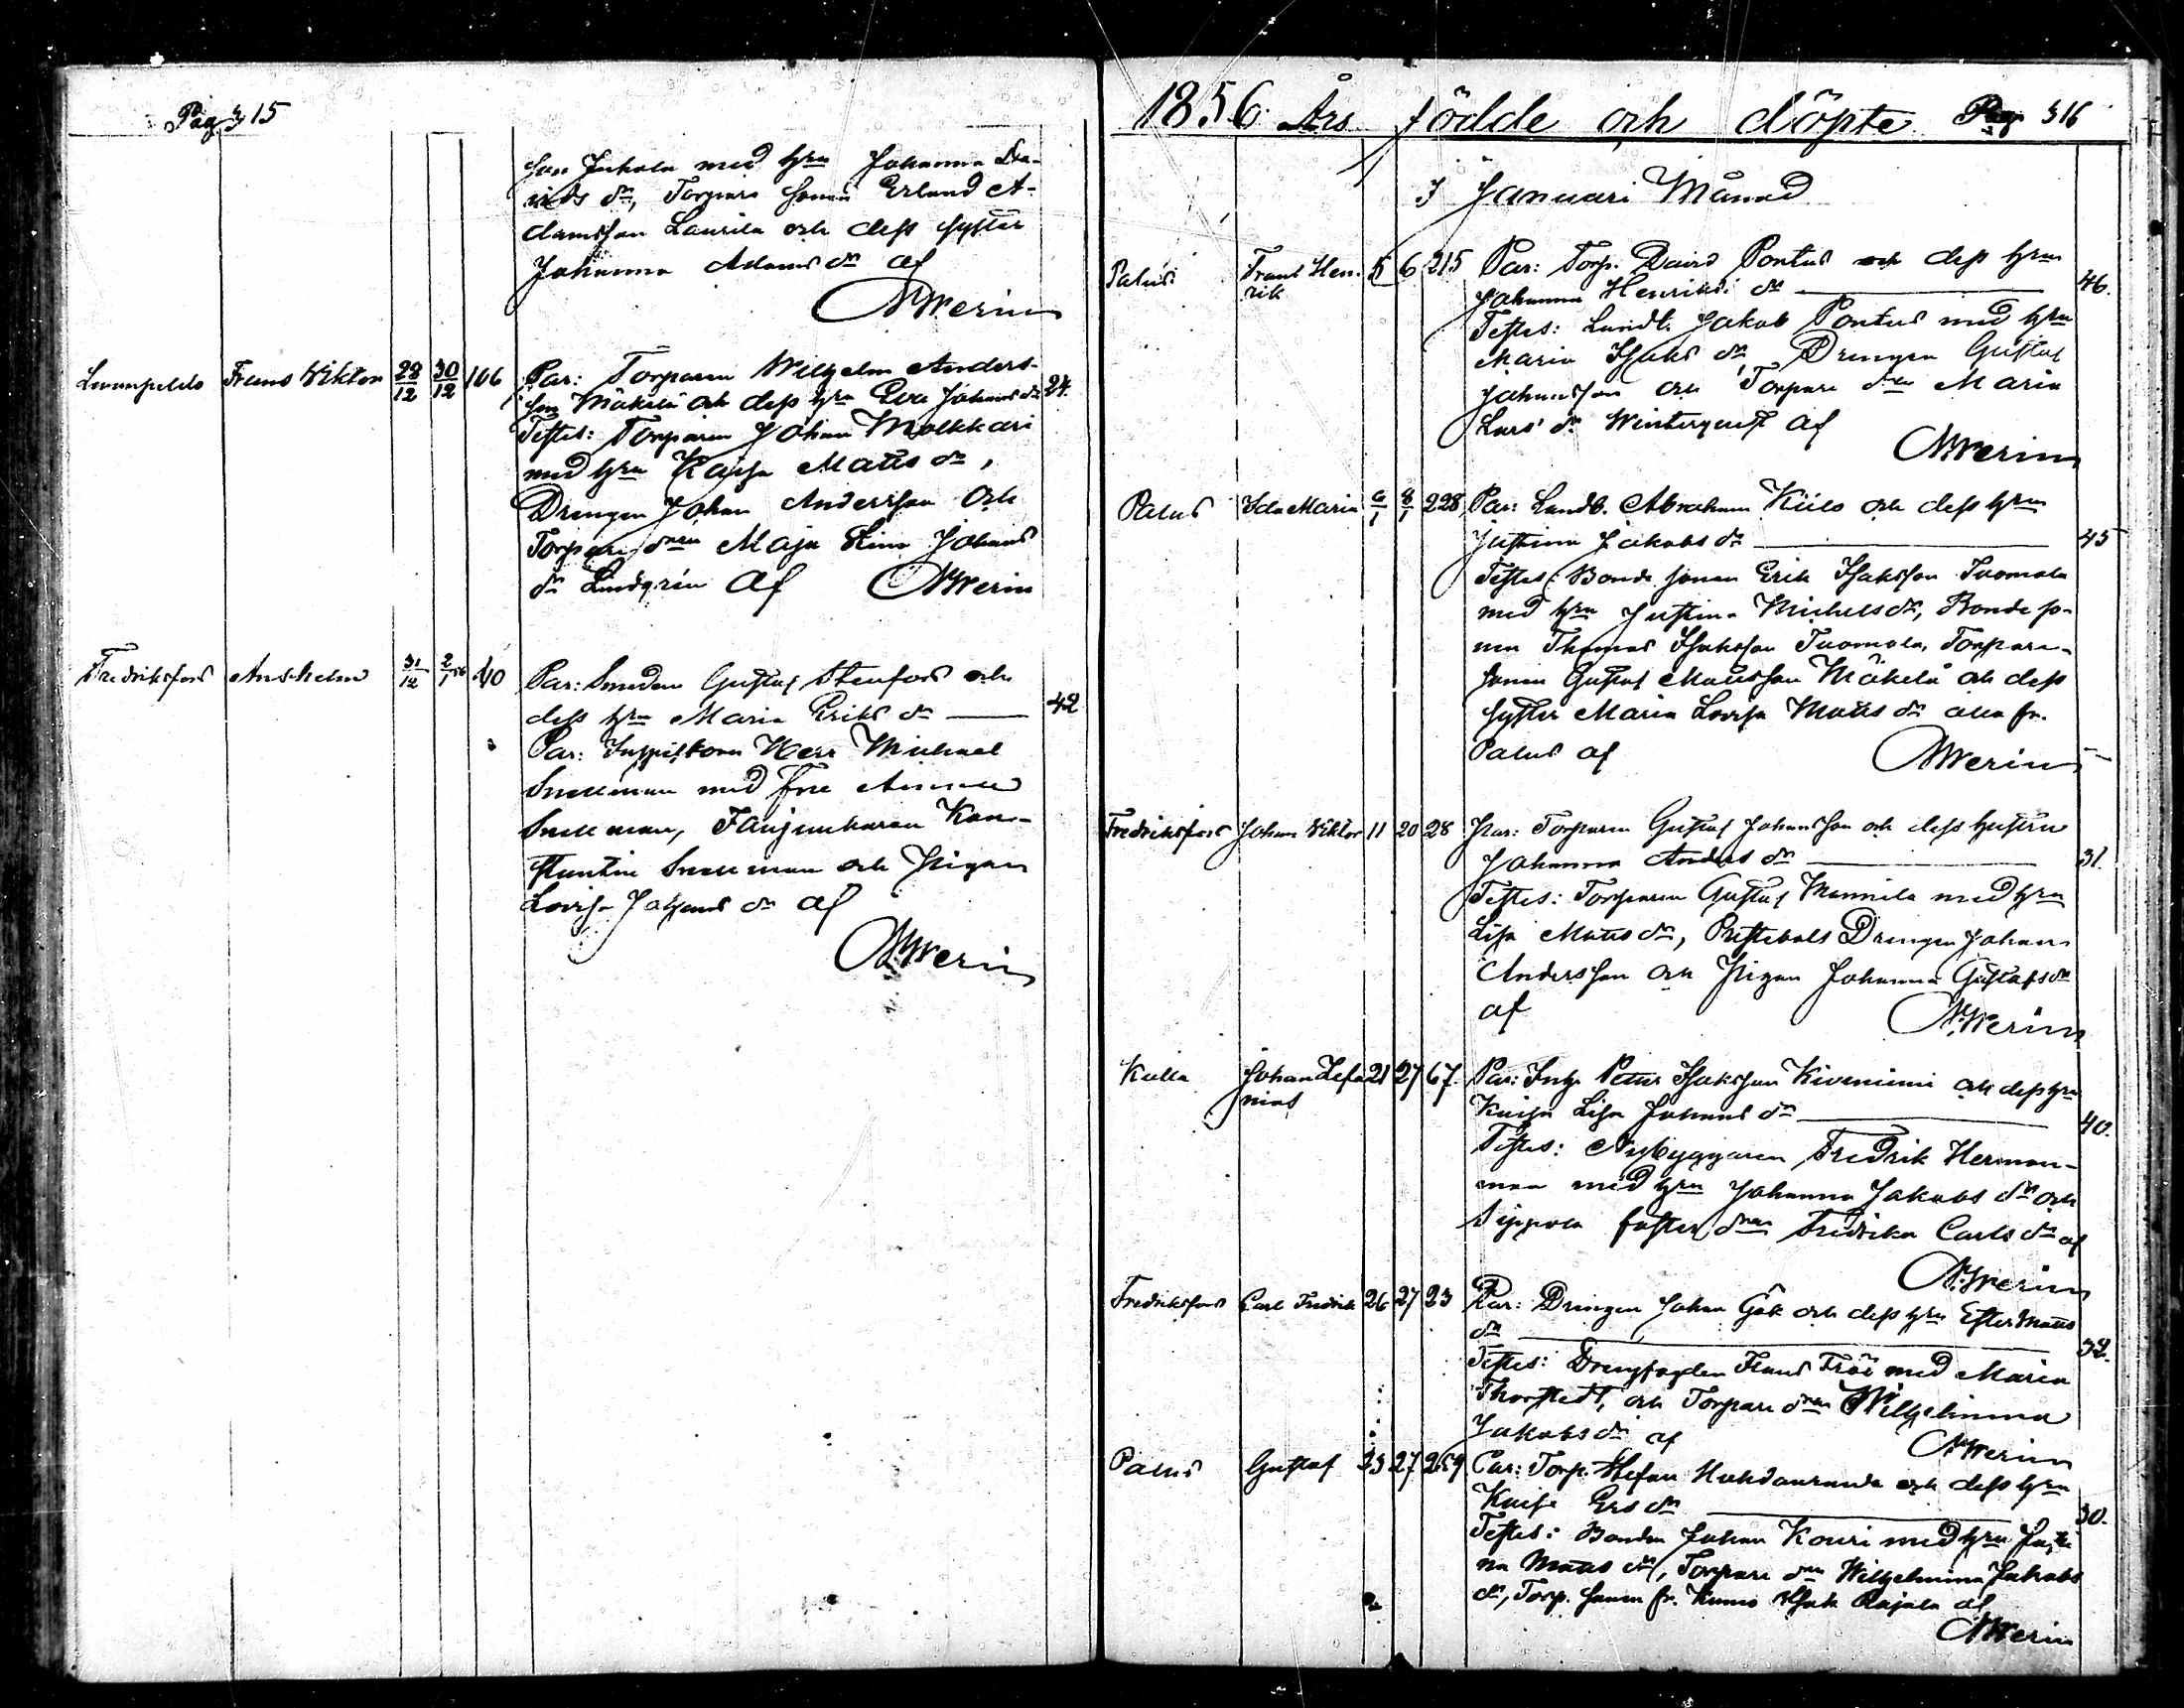 Pag 315
son Juhola med hru Johanna Da-
vids dr, Torpare sonen Erland A-
damsson Laurila och dess syster
Johanna Adams dr af
NWerin
Frans Viktor 28/12 30/12 106 Par: Torparen Wilhelm Anders-
son Mäkelä och dess hru Eva Johans dr 24.
Testes: Torparen Johan
med hru Kajsa Matts dr,
Drengen Johan Andersson och
Torpare dren Maja Stina Johans
dr Lindgrén af NWerin
Fredriksfors Anshelm 31/12 2/1 56 40 Par: Smeden Gustaf Stenfors och
dess hru Maria Eriks dr 42
Par: Inspektorn Herr Michael
Snellman med Fru Anna
Snellman, Fanjunkaren Kon-
stantin Snellman och Pigan
Lovisa Johans dr af
NWerin
1856 Års födde och döpte Pag 316
I Januari Månad
Palus Frans Hen- 5 6 215 Par: Torp. David Pontus och dess hru
rik Johanna Henriks dr 46.
Testes: Landb. Jakob Pontus med hru
Maria Isaks dr, Drengen Gustaf
Johansson och Torpare dren Maria
Lars dr Winterqvist af
NWerin
Palus Ida Maria 6/1 8/1 228 Par: Landb. Abraham Kiilo och dess hru
Justina Jakobs dr 45
Testes: Bonde sonen Erik Isaksson Tuomola
med hru Justina Michels dr, Bonde so-
nen Thomas Isaksson Tuomola, Torpare-
sonen Gustaf Mattsson Mäkelä och dess
syster Maria Lovisa Matts dr alla fr.
Palus af NWerin
Fredriksfors Johan Viktor 11 20 28 Par: Torparen Gustaf Johansson och dess hustru
Johanna Anders dr 31.
Testes: Torparen Gustaf Mannila med hru
Lisa Matts dr, Prestebols Drengen Johan
Andersson och Pigan Johanna Gustafs dr
af NWerin
Kulla Johan Zefa- 21 27 67. Par: Inh. Petter Isaksson Kiviniemi och dess hru
nias Kaisa Lisa Johans dr 40.
Testes: Nybyggaren Fredrik Herman-
man med hru Johanna Jakobs dr och
Sippola foster dren Fredrika Carls dr af
NWerin
Fredriksfors Carl Fredrik 26 27 23 Par: Drengen Johan Gök och dess hru Ester Matts
dr 32.
Testes: Drengfogden Frans Fröi med Maria
Thorstedt, och Torpare dren Wilhelmina
Jakobs dr af NWerin
Palus Gustaf 23 27 259 Par: Torp. Stefan Huhdanranda och dess hru
Kaisa Ers dr 30.
Testes: Bonden Johan Kouri med hru Justi-
na Matts dr, Torpare dren Wilhelmina Jakobs
dr, Torp. sonen fr. Kumo Isak Rajala af
NWerin